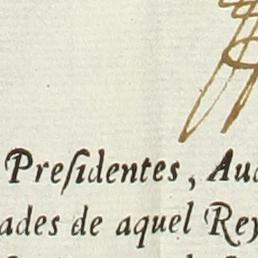 Preſidentes, Aud
ades de aquel Rey